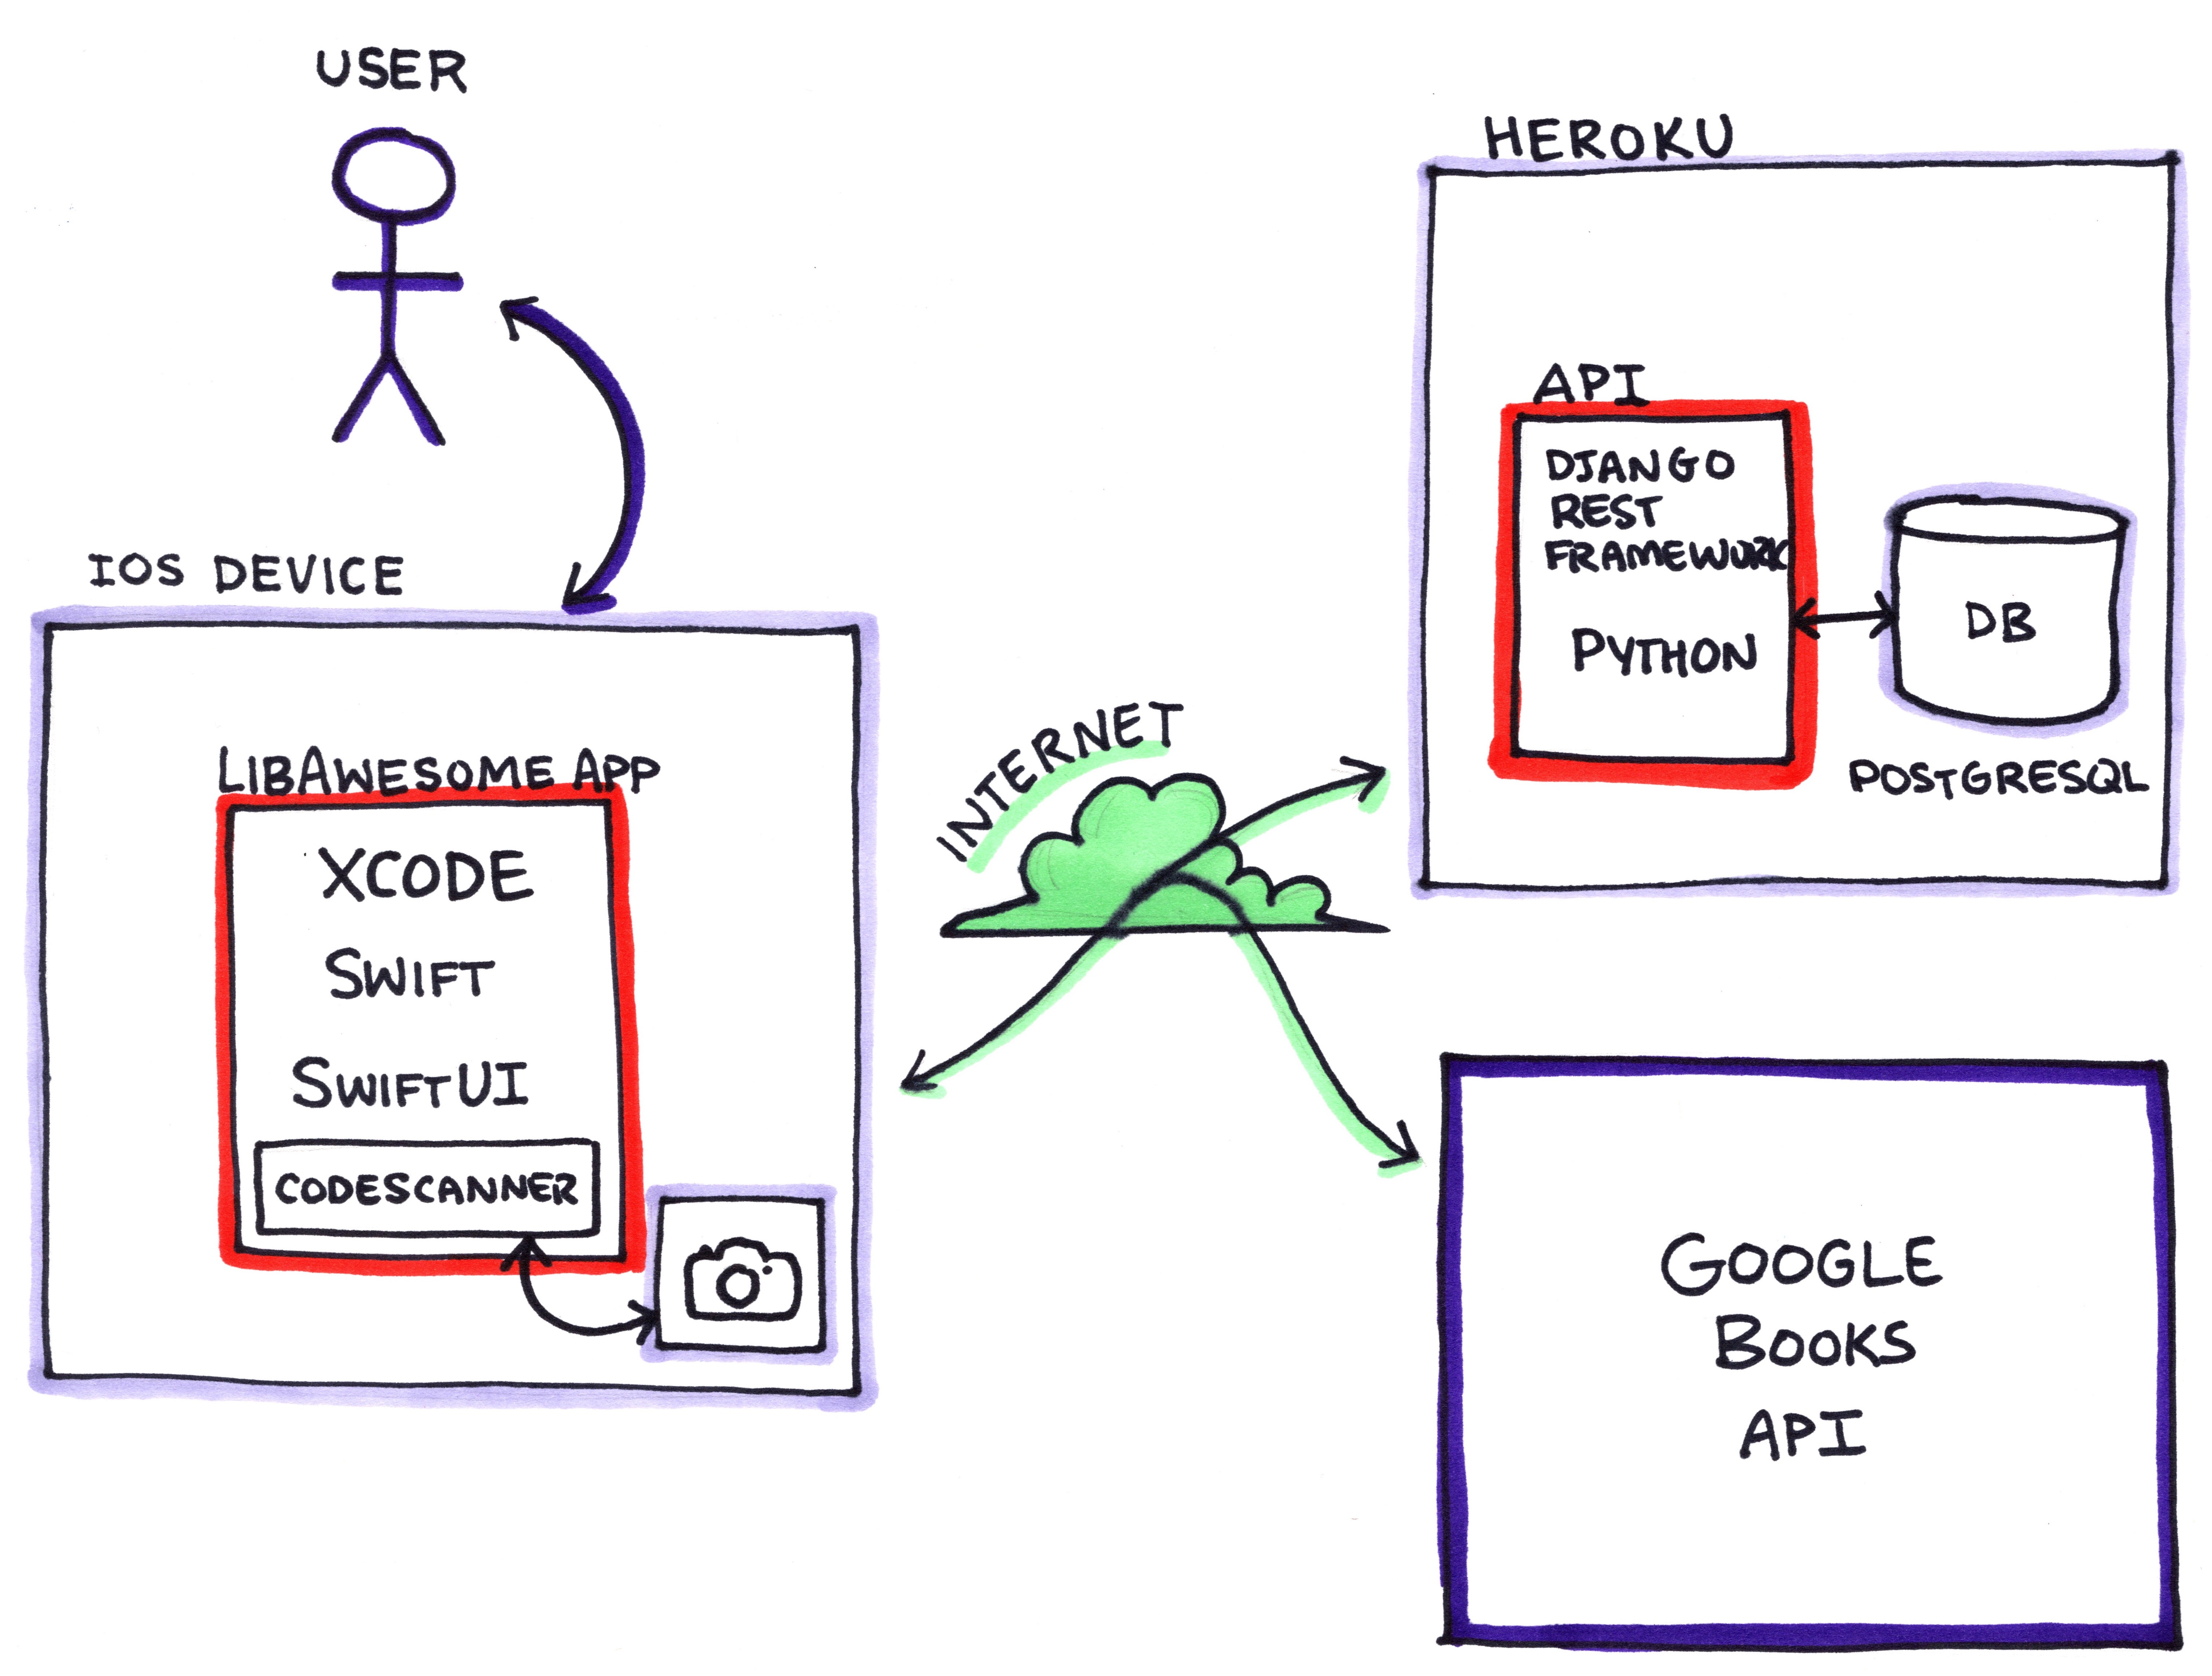 USER
IOS DEVICE
LIBAWESOME APP
XCODE
SWIFT
SWIFTUI
CODESCANNER
INTERNET
HEROKU
API
DJANGO
REST
FRAMEWORK
PYTHON
DB
POSTGRESQL
GOOGLE
BOOKS
API